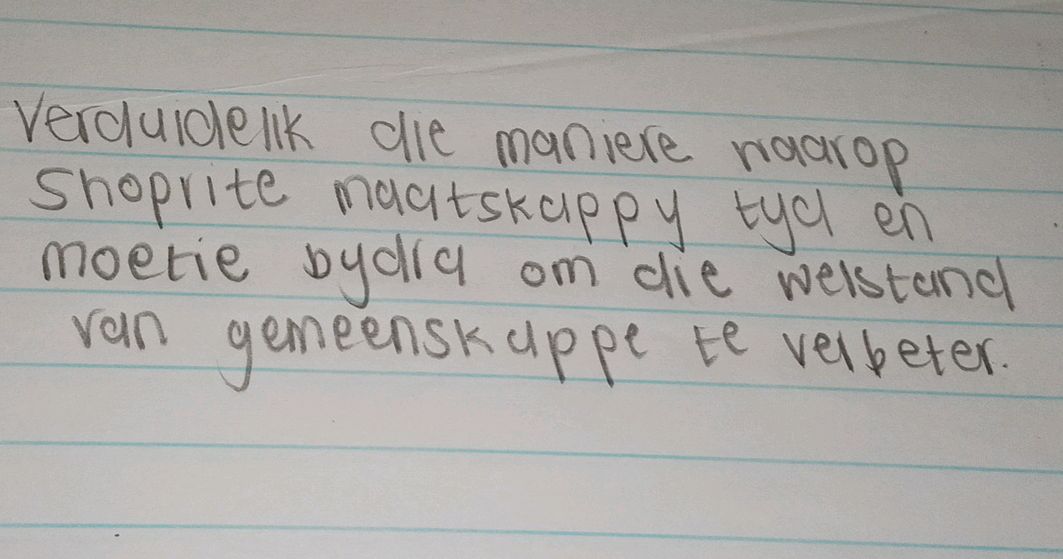 Verduidelik die maniere waarop
Shoprite maatskappy tyd en
moetie bydra om die welstand
van gemeenskappe te verbeter.